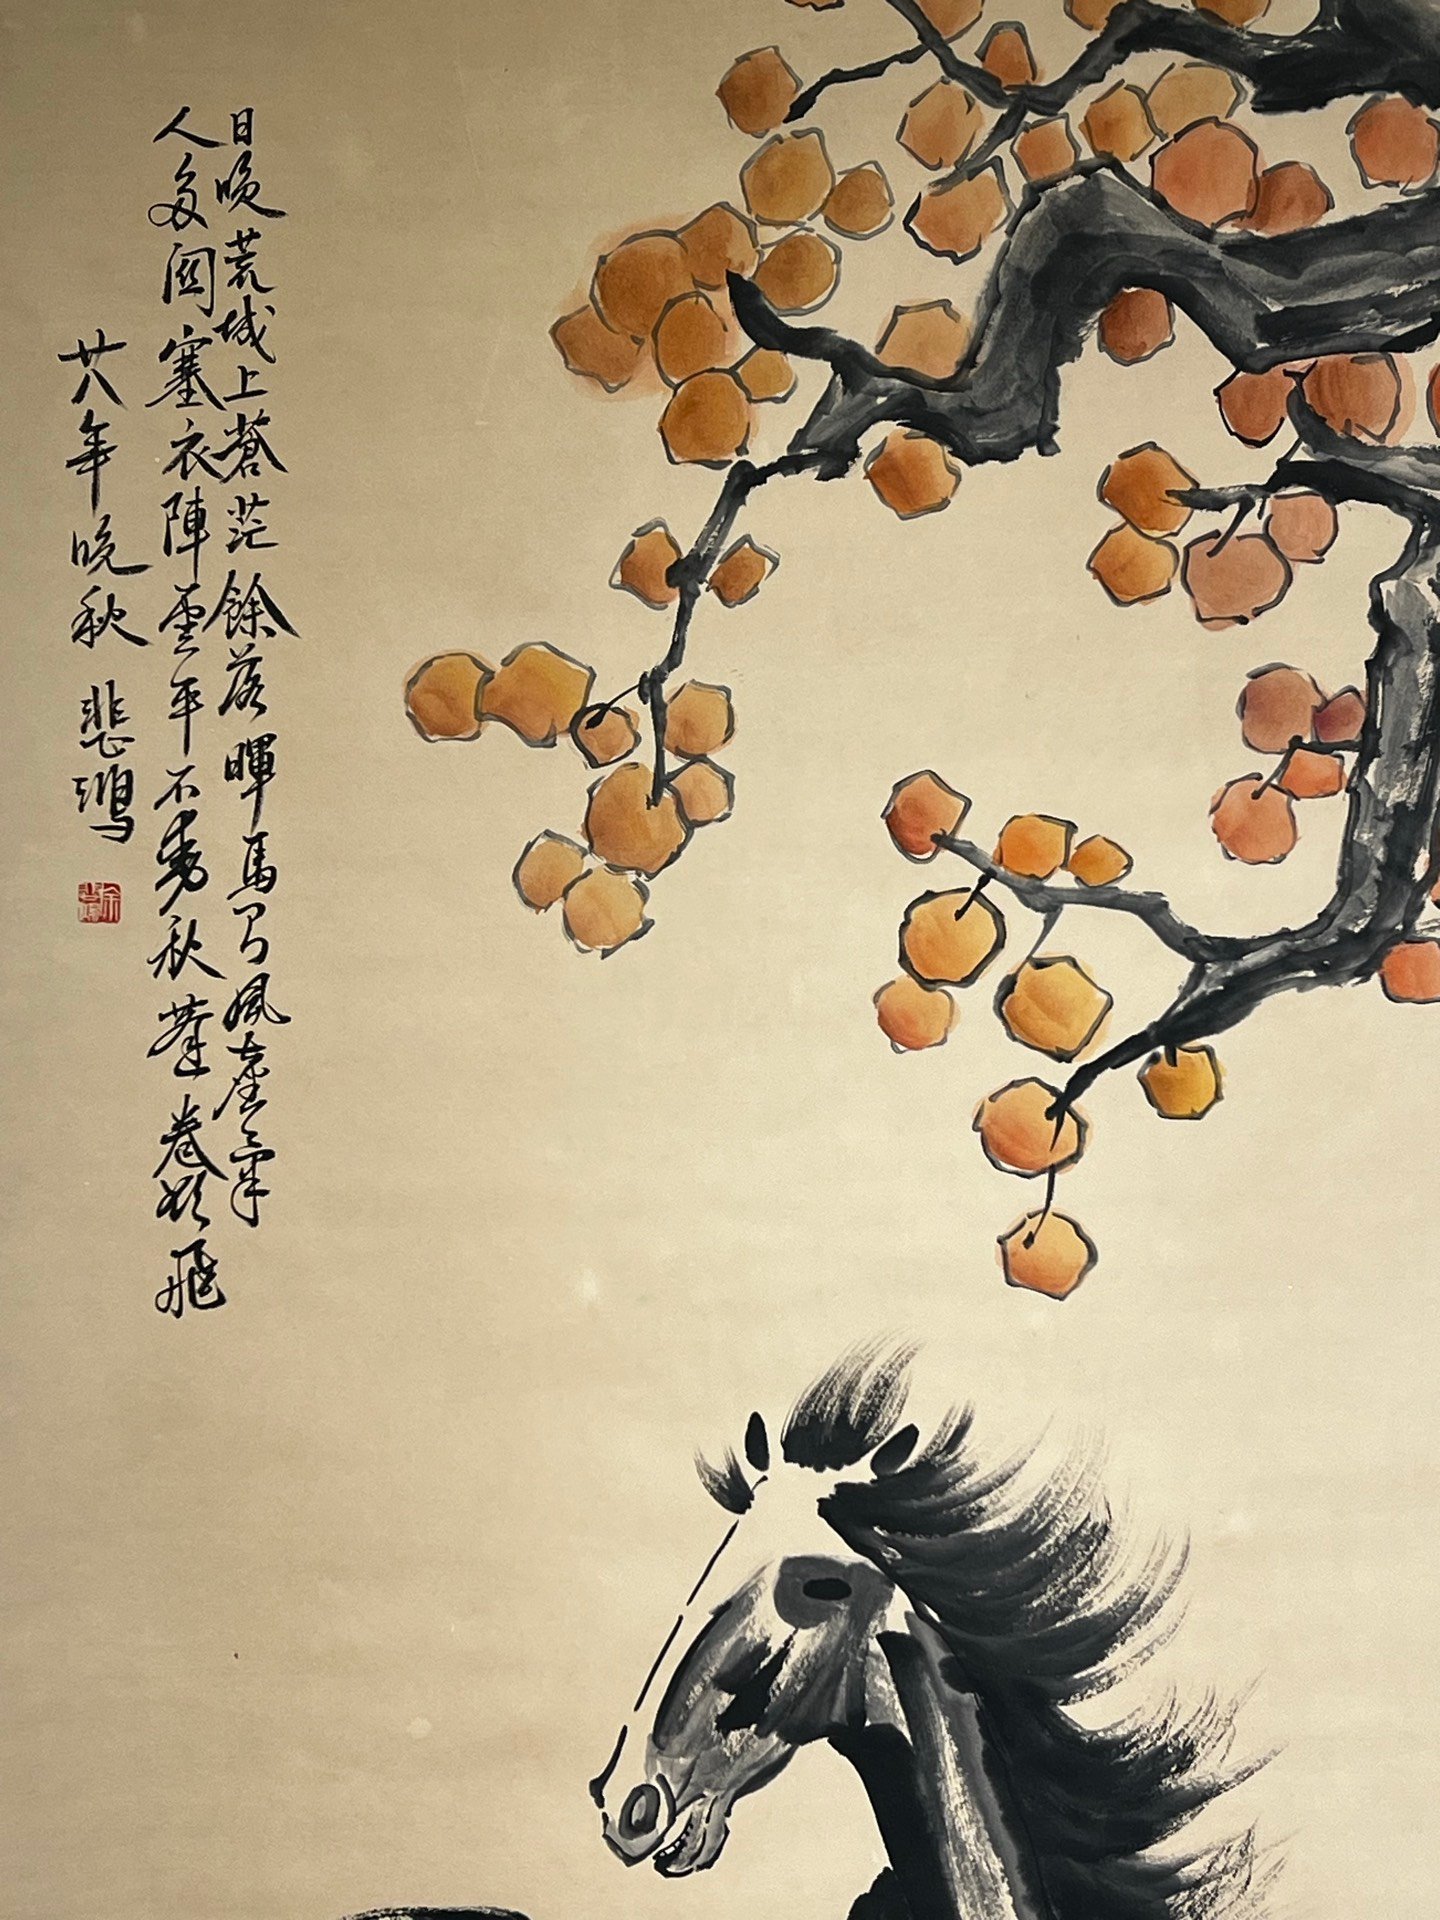 日晚荒城上蒼茫餘落暉馬多風塵氣
人多關塞衣陣雲平不動秋蓬卷欲飛
廿八年晚秋 悲鴻